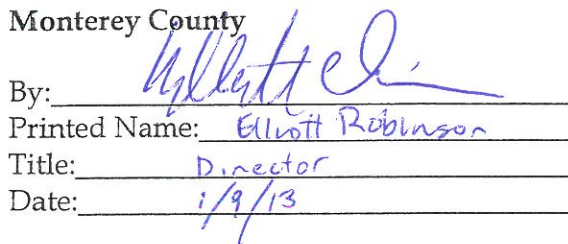 Monterey County
By:
Printed Name: Elliott Robinson
Title: Director
Date: 1/9/13